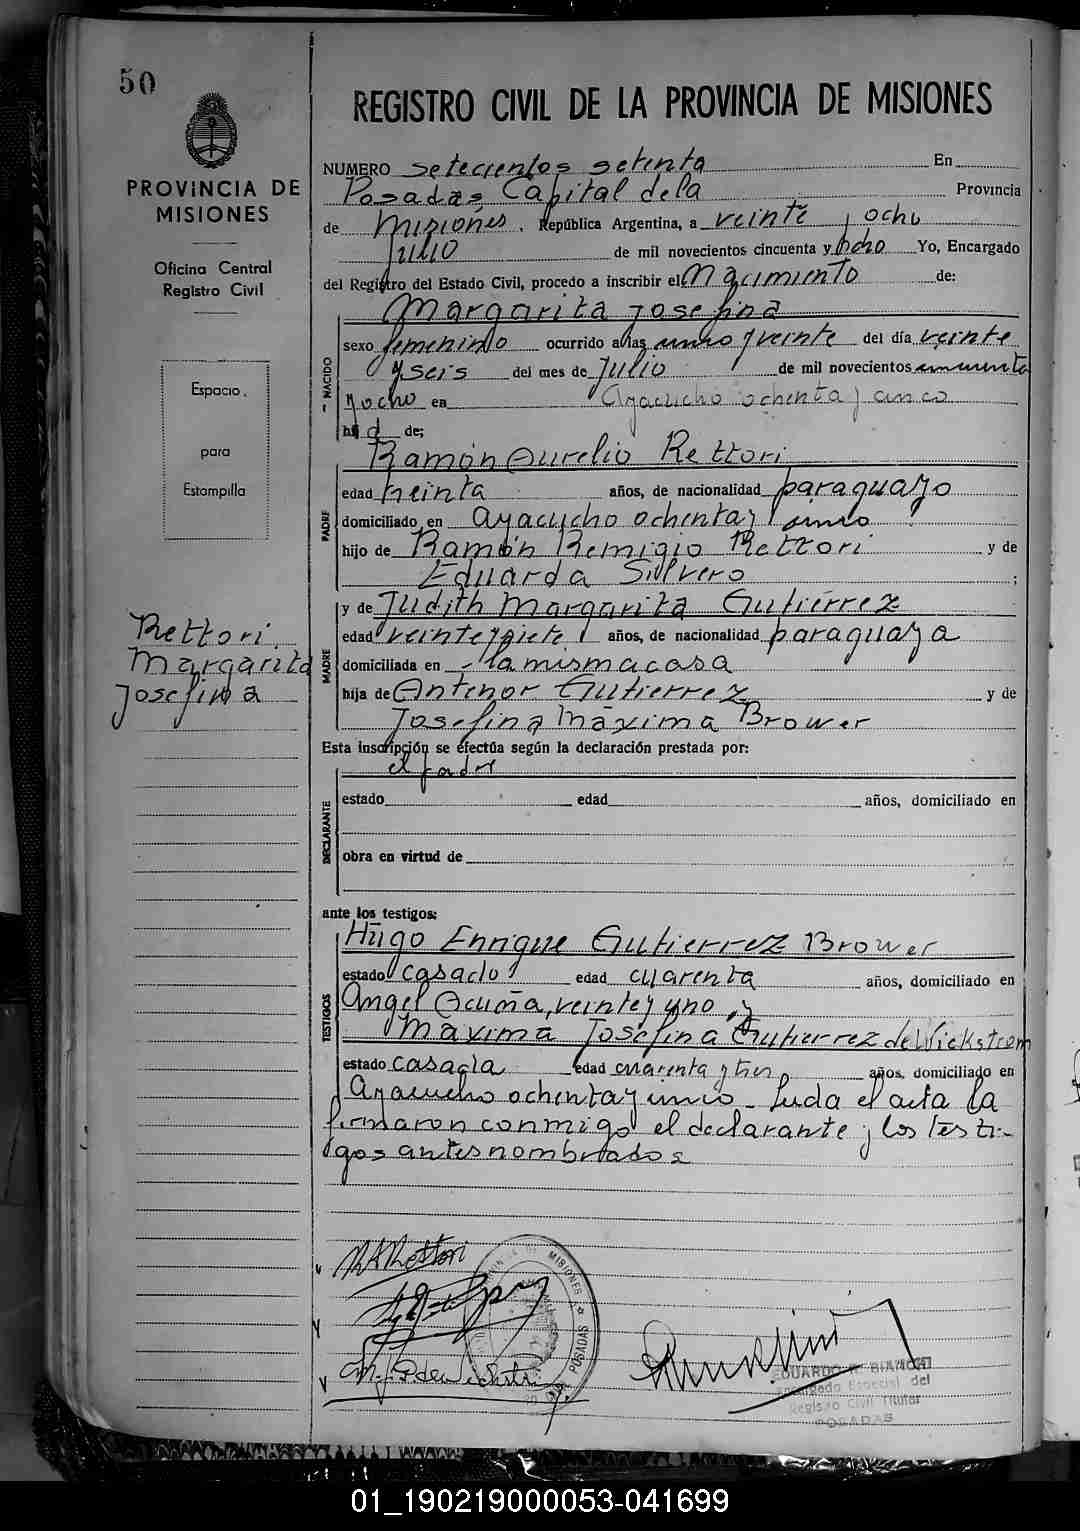 50
PROVINCIA DE
MISIONES
Oficina Central
Registro Civil
Espacio
para
Estampilla
Rettori
Margarita
Josefina
REGISTRO CIVIL DE LA PROVINCIA DE MISIONES
NUMERO setecientos setenta En
Posadas Capital dela Provincia
de Misiones, República Argentina, a veinte y ocho
Julio de mil novecientos cincuenta y ocho Yo, Encargado
del Registro del Estado Civil, procedo a inscribir el Nacimiento de:
NACIDO
Margarita Josefina
sexo femenino ocurrido a las y veinte del día veinte
y seis del mes de Julio de mil novecientos cincuenta
y ocho en Ayacucho ochenta y cinco
hija de;
PADRE
Ramón Aurelio Rettori
edad treinta años, de nacionalidad paraguayo
domiciliado en Ayacucho ochenta y cinco
hijo de Ramón Remigio Rettori y de
Eduarda Silvero ;
MADRE
y de Judith Margarita Gutiérrez
edad veinteysiete años, de nacionalidad paraguaya
domiciliada en - la misma casa
hija de Antenor Gutierrez y de
Josefina Máxima Brower
Esta inscripción se efectúa según la declaración prestada por:
el padre
DECLARANTE
estado edad años, domiciliado en
obra en virtud de
ante los testigos:
TESTIGOS
Hugo Enrique Gutierrez Brower
estado casado edad cuarenta años, domiciliado en
Angel Acuña, veinte y uno y
Maxima Josefina Gutierrez de Wickstrom
estado casada edad cuarenta y tres años, domiciliado en
Ayacucho ochenta y cinco - Leida el acta la
firmaron conmigo el declarante y los testi-
gos antes nombrados
RARettori
MISIONES
POSADAS
EDUARDO R. BIANCHI
Encargado Especial del
Registro Civil Titular
POSADAS
01_190219000053-041699